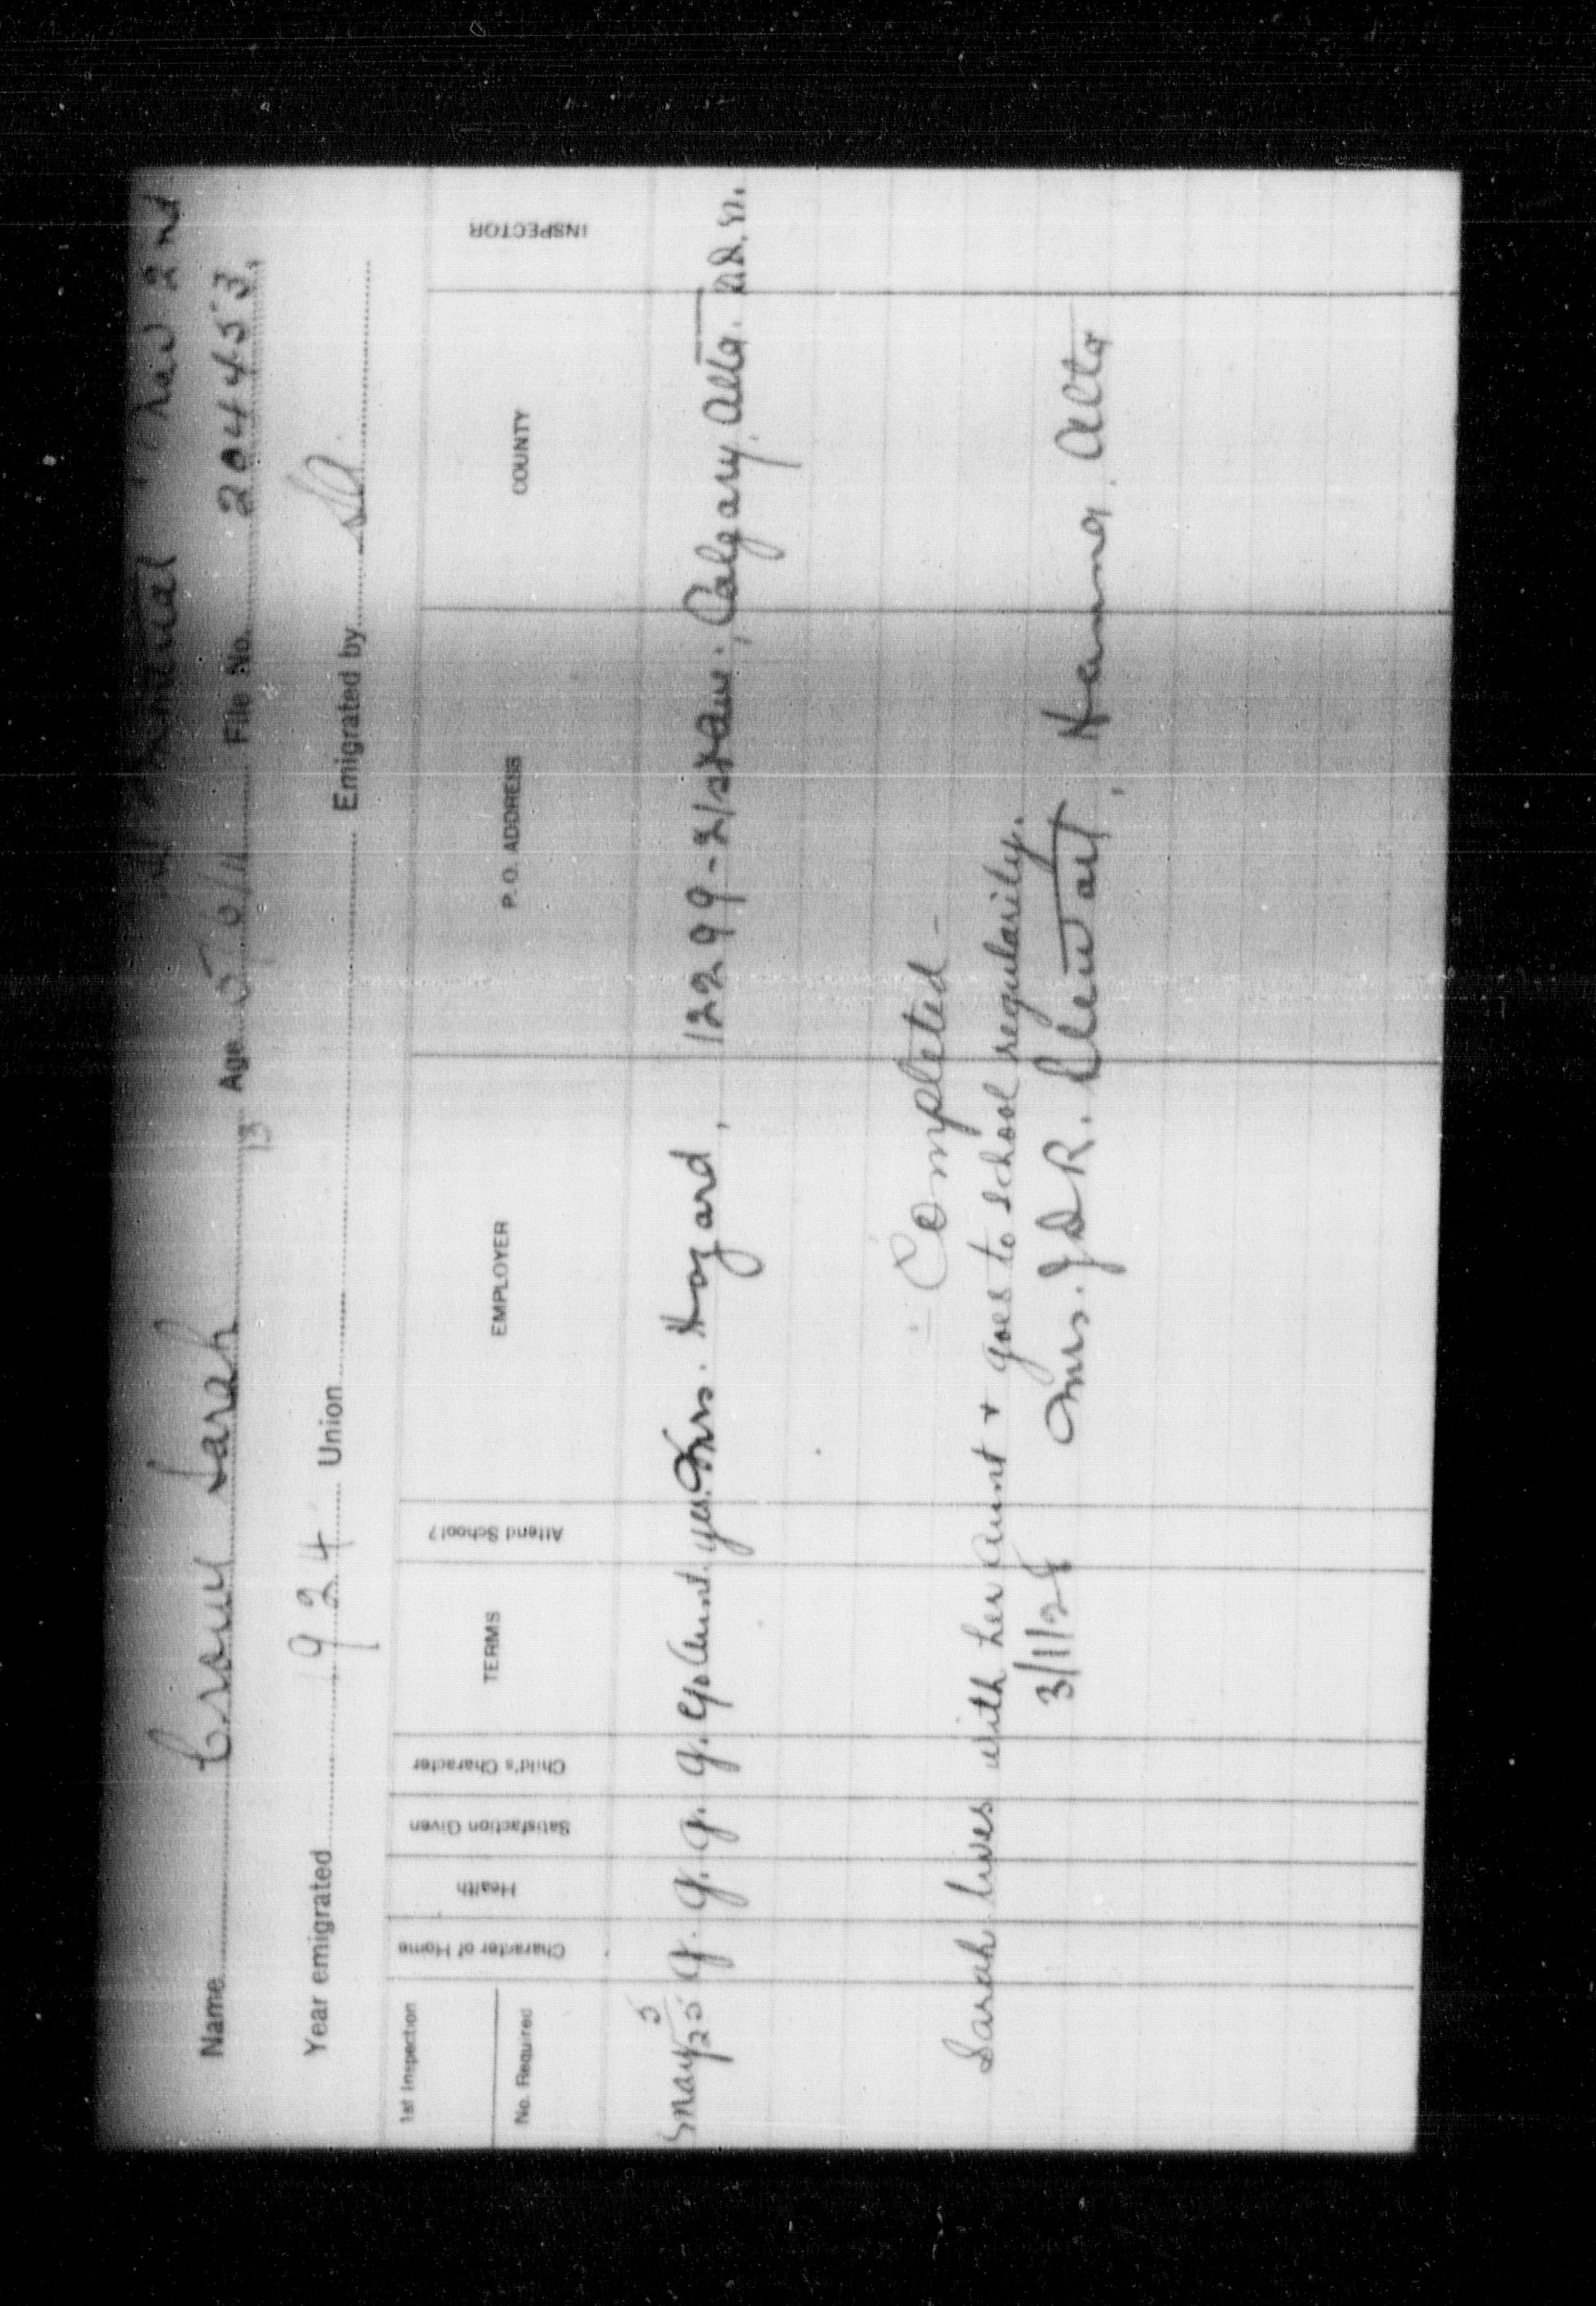 Mar 2nd
Name Crowe Sarah Age File No. 204453.
13
Year emigrated 1924 Union Emigrated by SA.
1st Inspection
No. Required
Character of Home
Health
Satisfaction Given
Child's Character
TERMS
Attend School?
EMPLOYER
P. O. ADDRESS
COUNTY
INSPECTOR
May 5/25 g. g. g. g. Aunt. yes. Mrs. Hozard, 1229 9-21st Calgary, Alta.
- Completed -
Sarah lives with her aunt & goes to school regularily.
3/11/26 Mrs. J D R. Stewart, Hanna, Alta